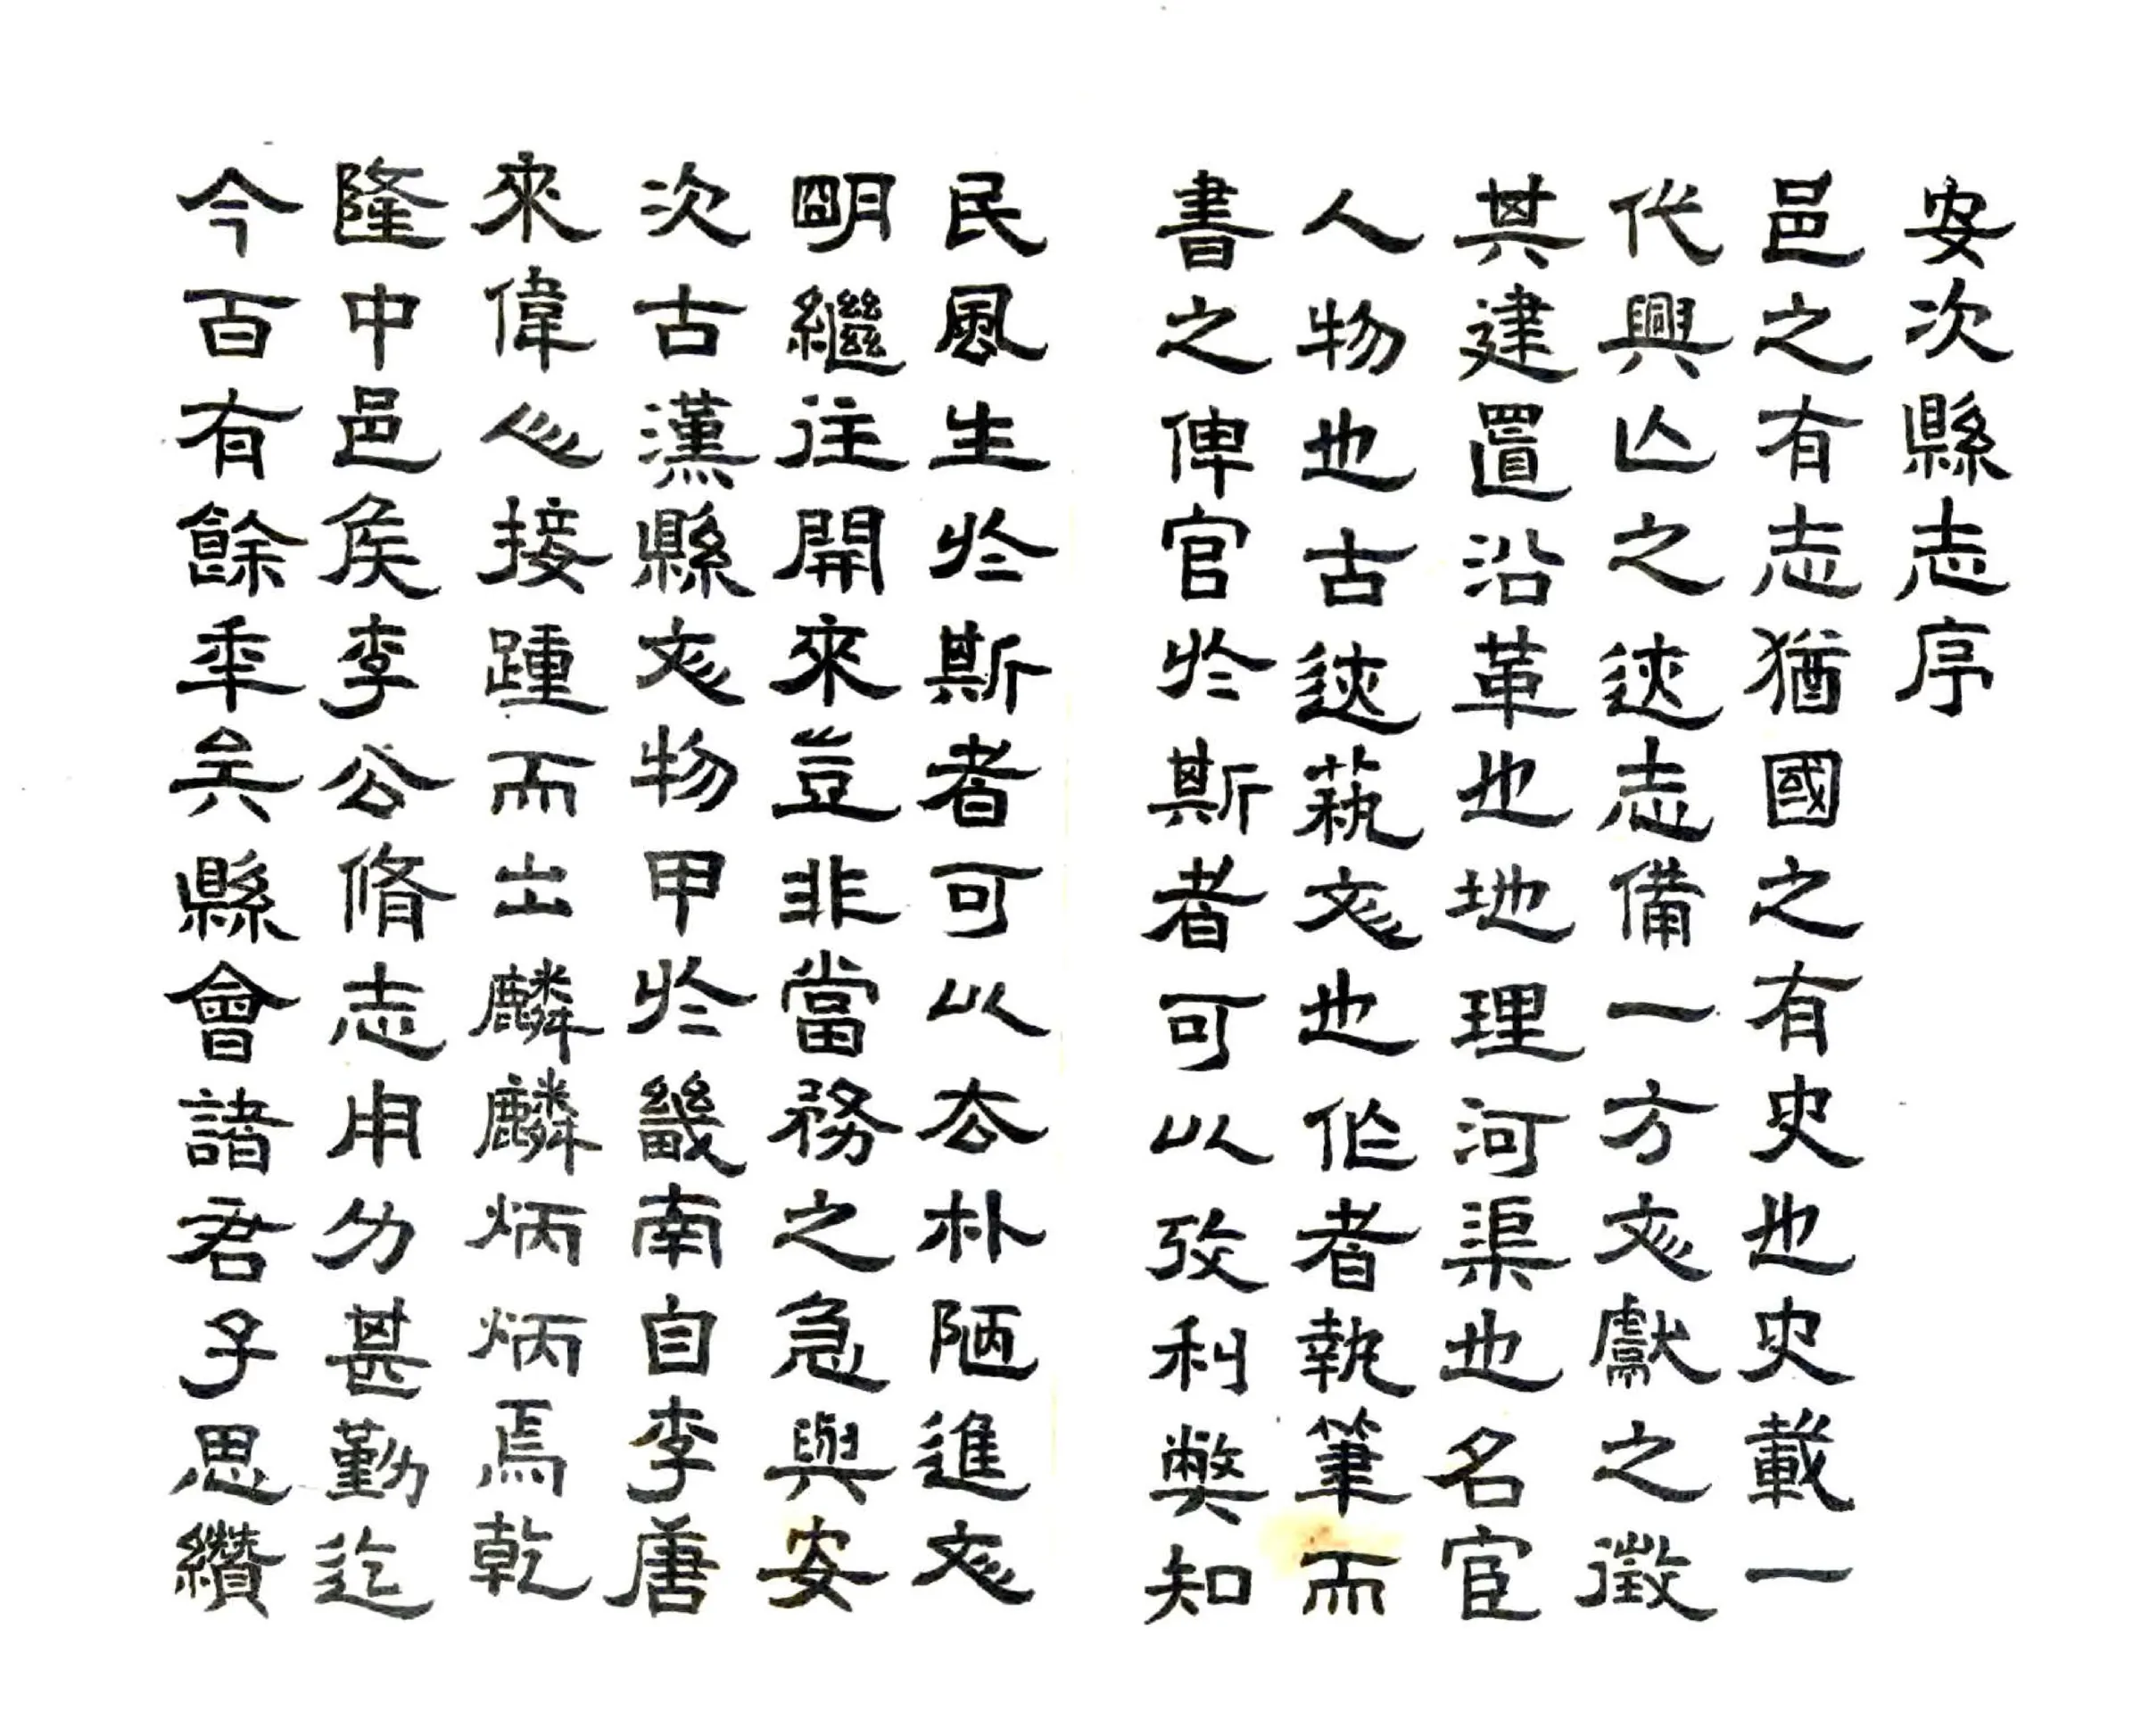 安次縣志序
邑之有志猶國之有史也史載一
代興亾之迹志備一方文獻之徵
其建置沿革也地理河渠也名宦
人物也古迹蓺文也作者執筆而
書之俾官於斯者可以攷利弊知
民風生於斯者可以去朴陋進文
明繼往開來豈非當務之急與安
次古漢縣文物甲於畿南自李唐
來偉人接踵而出麟麟炳炳焉乾
隆中邑侯李公脩志用力甚勤迄
今百有餘年矣縣會諸君子思纘